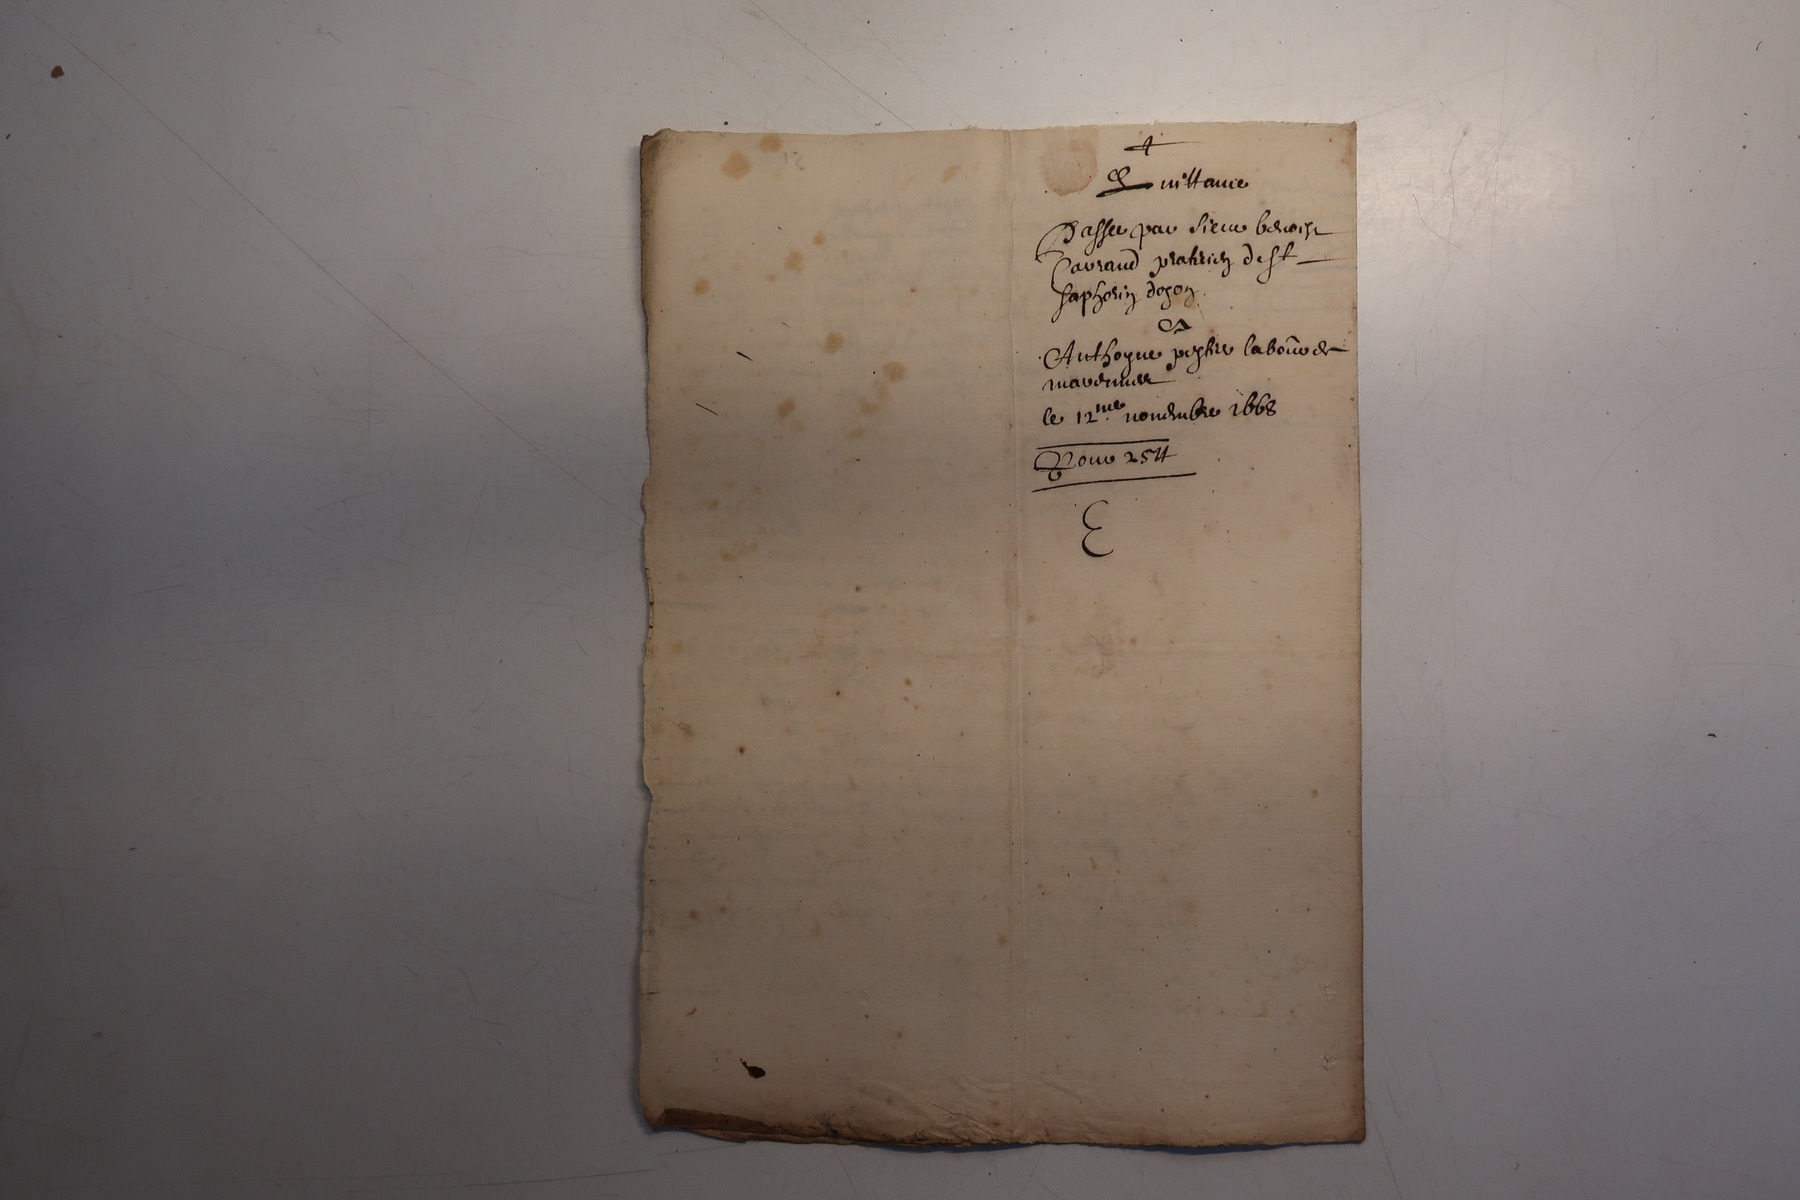 Quittance
Passee par sieur benoist
Pavrand praticien de st
saphorin dozon
A
Anthoyne peyhre labour de
marennes
le 12me novembre 1668
Pour 25 tt
E